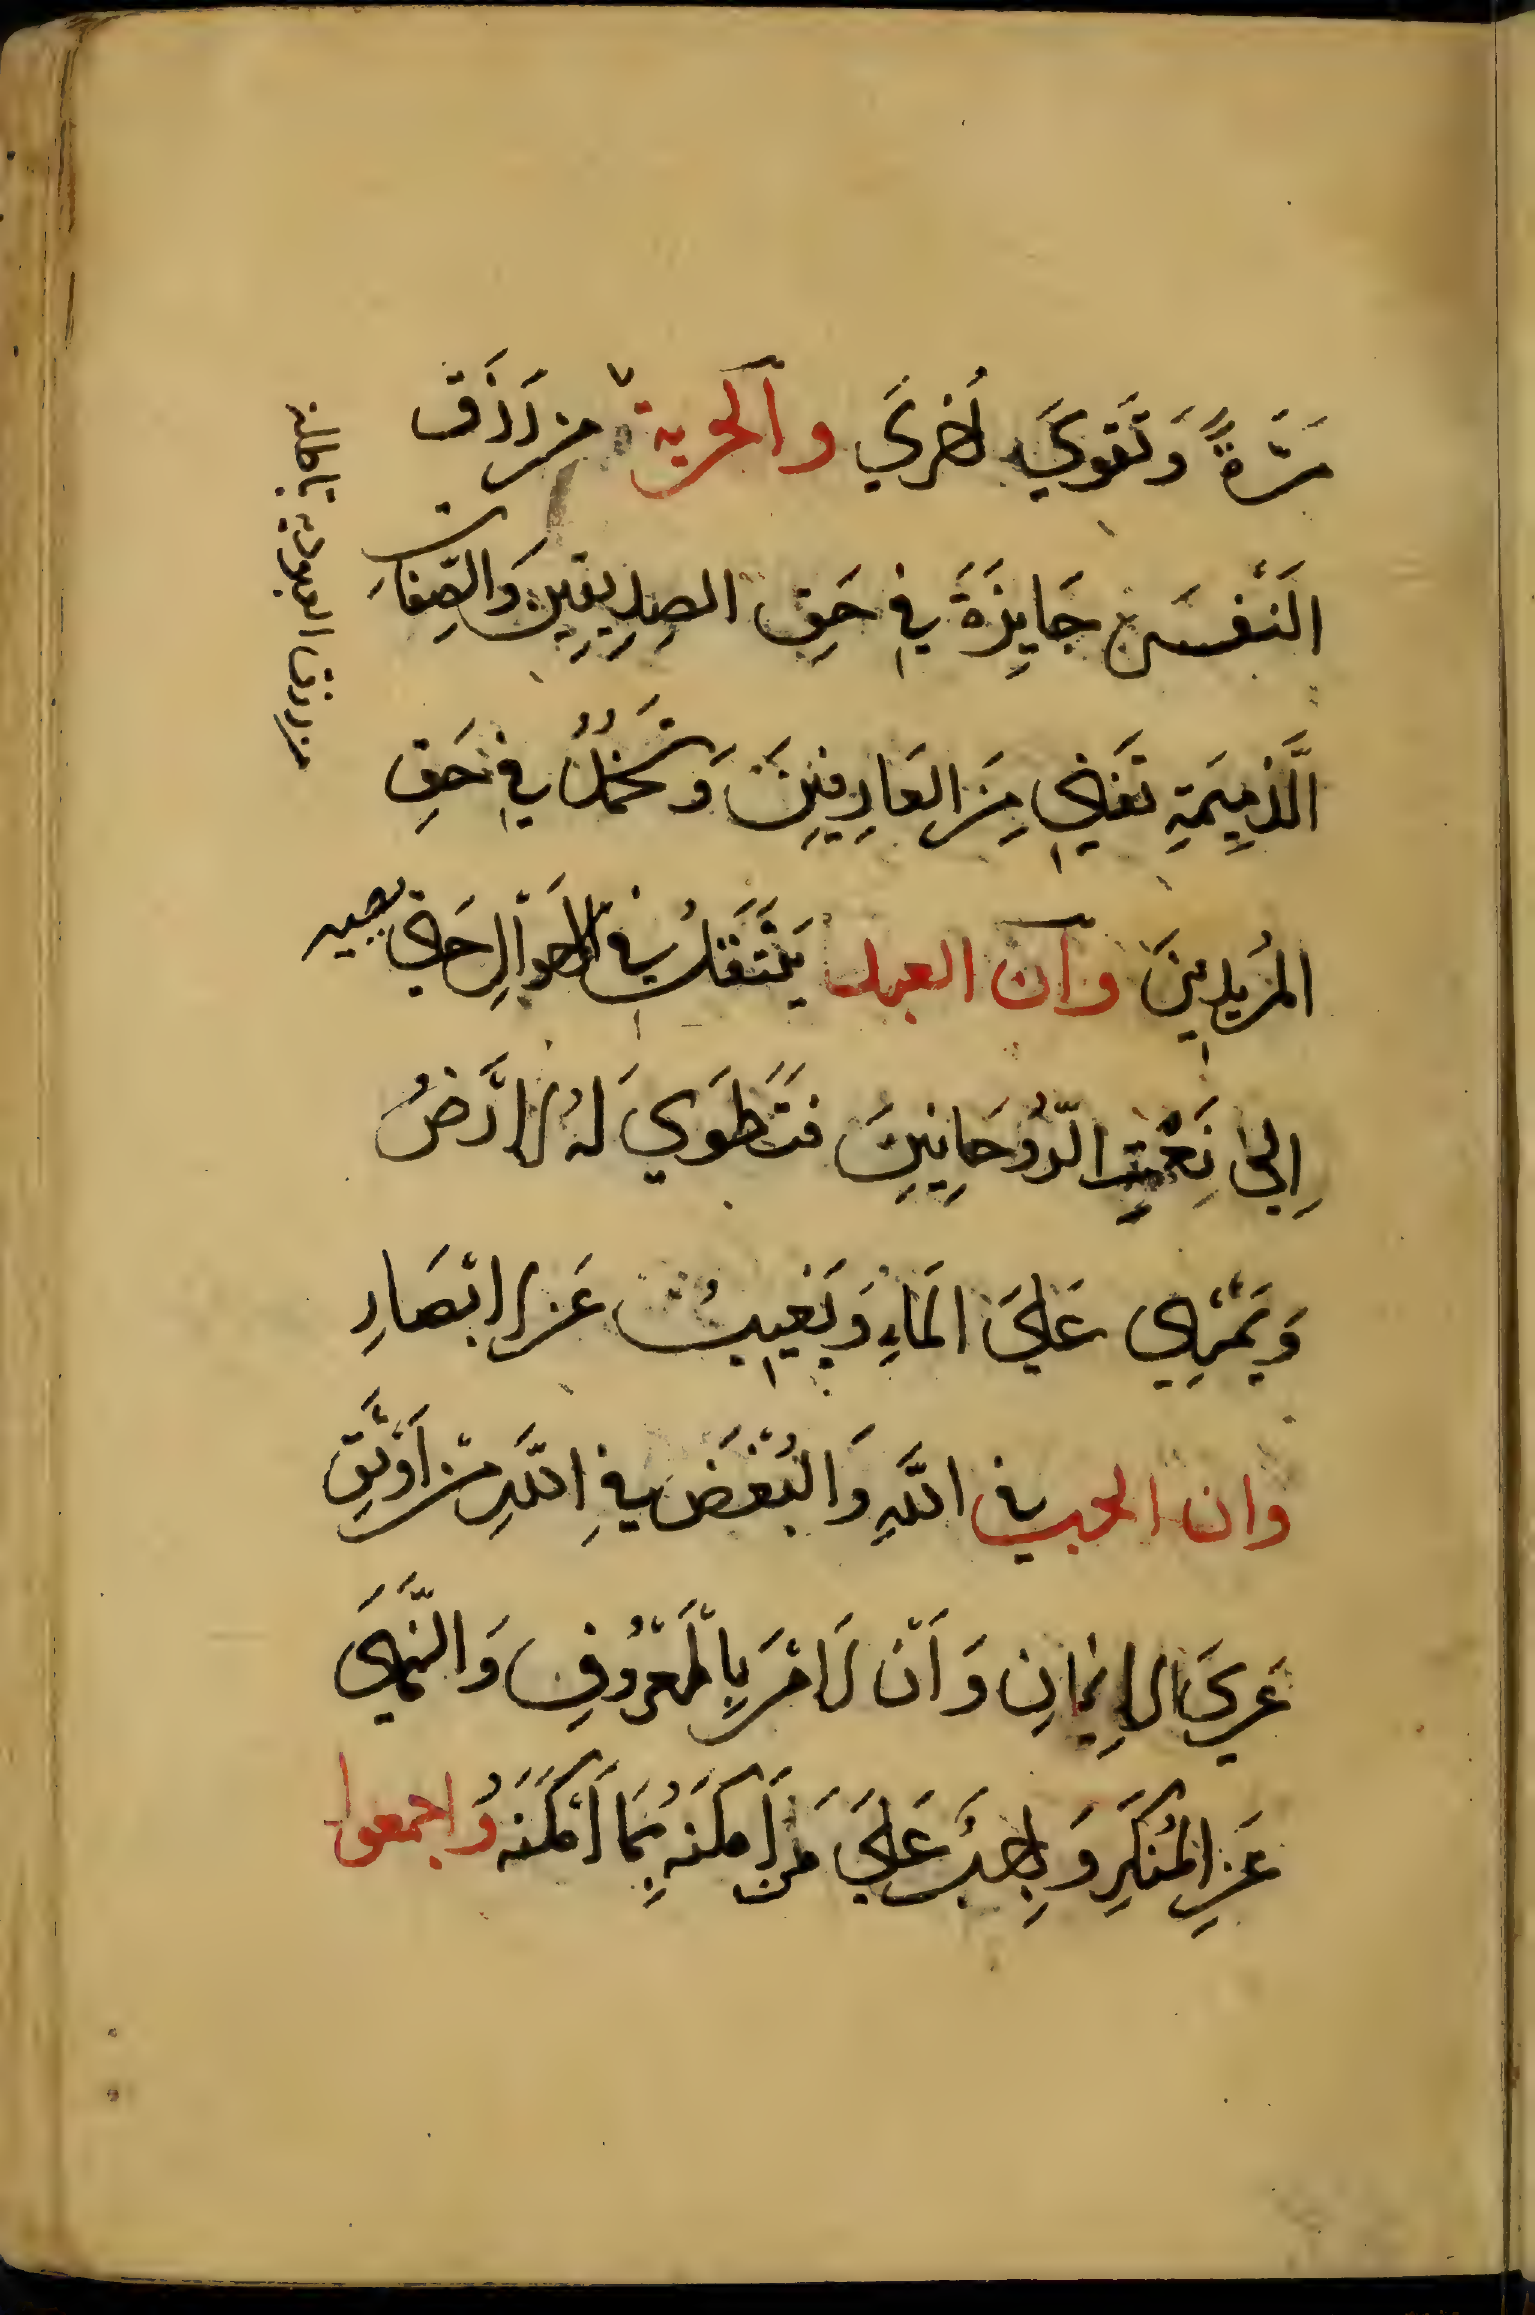 مَرَّةً وَتَقوَىَ اُخرىَ والحرية من رَزَقَ
النَفْسَ جَايِزَةَ في حَقِ الصِدِيقِينَ وَالصِّفَاتِ
الَّذمِيمَةِ تَفَنى مِنَ العَارِفينَ وَتَخمُلُ في حَقِ
المُريدينَ وان العبد يَنْتَقَلُ في الاَحوَالِ حَتى يصير
اِلى نَعْتِ الرّوُحَانِينَ فَتَطوَي لَهُ الارَضُ
وَيَمْشي عَلىَ المَاءِ وَيَغيبُ عَن الابصَارِ
وان الحب في اللَّهِ وَالبُغْضَ فيِ اللَّهِ مْن اَوْثَقِ
عَرىَ الاِيمَانِ وَاَن الاَمْرَ بِالَمعْرُوُفِ وَالنَّهىَ
عَنِ المُنكَرِ وَاجِبُ عَلىَ مَن اَمكَنَهُ بِمَا اَمْكَنَهُ وَاجمعوا
من رزق العبودية باطلة